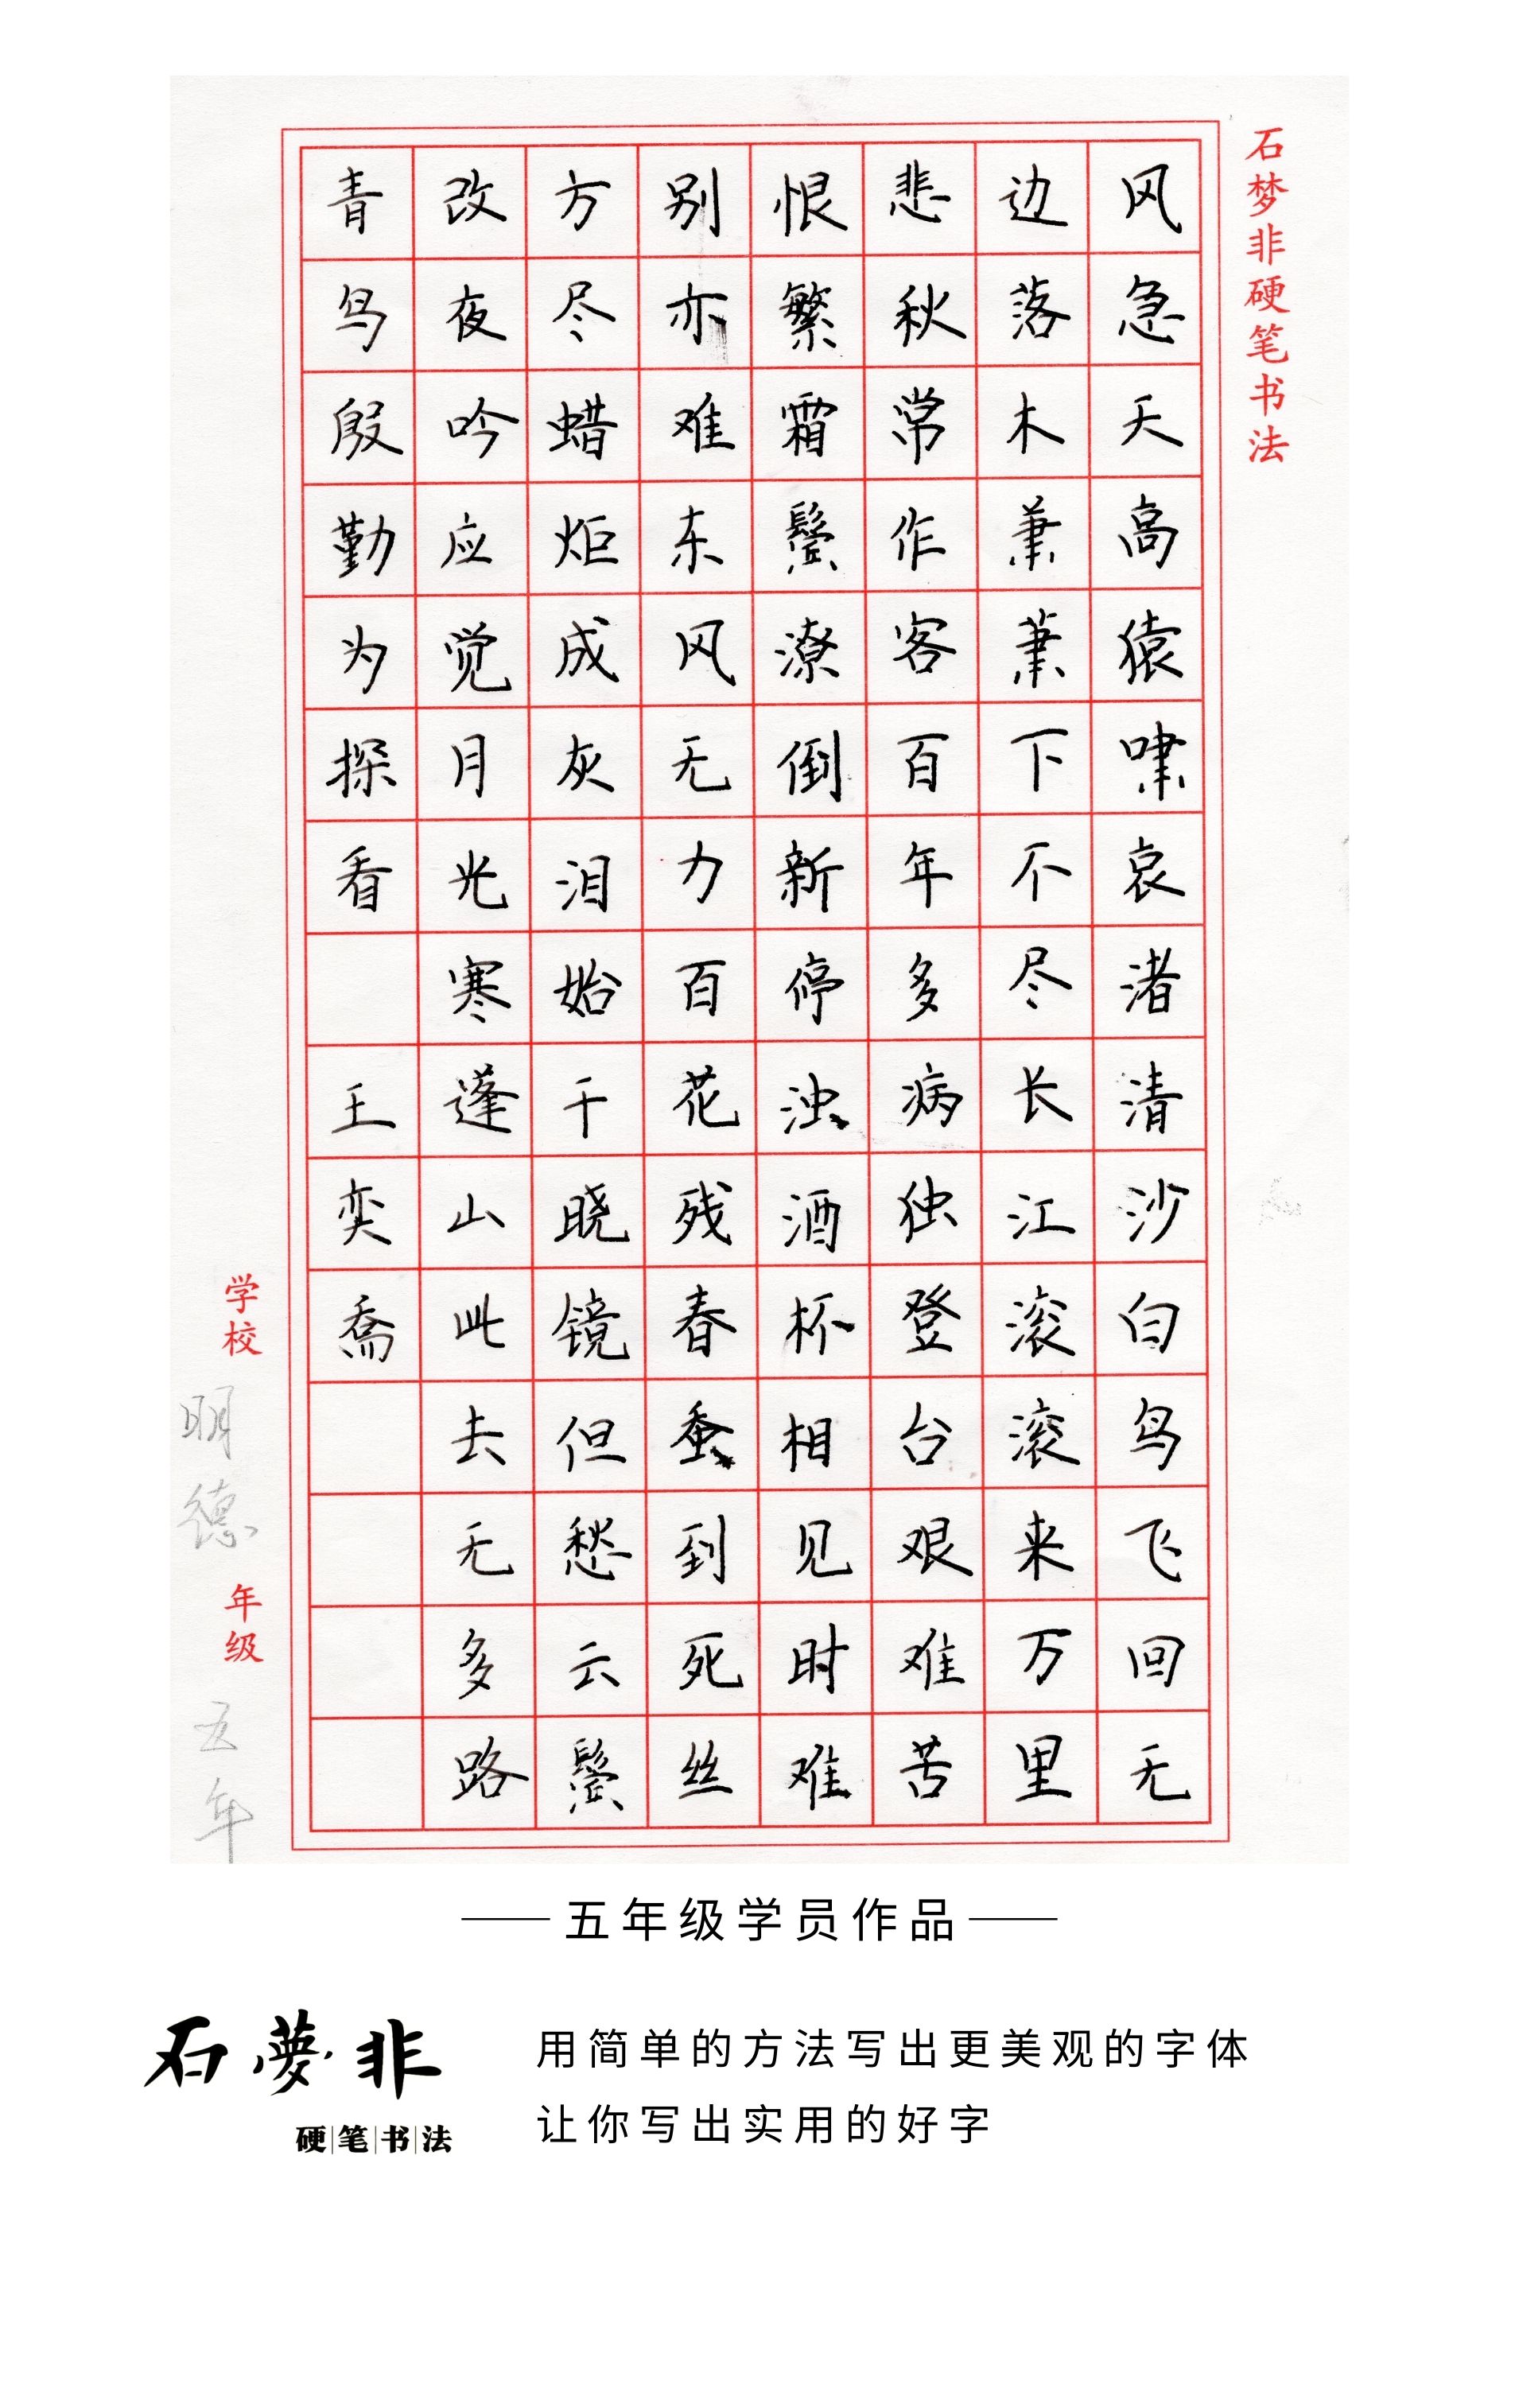 石梦非硬笔书法
风急天高猿啸哀渚清沙白鸟飞回无
边落木萧萧下不尽长江滚滚来万里
悲秋常作客百年多病独登台艰难苦
恨繁霜鬓潦倒新停浊酒杯相见时难
别亦难东风无力百花残春蚕到死丝
方尽蜡炬成灰泪始干晓镜但愁云鬓
改夜吟应觉月光寒蓬山此去无多路
青鸟殷勤为探看 王奕乔
学校 明德 年级 五年
五年级学员作品
石夢非
硬笔书法
用简单的方法写出更美观的字体
让你写出实用的好字